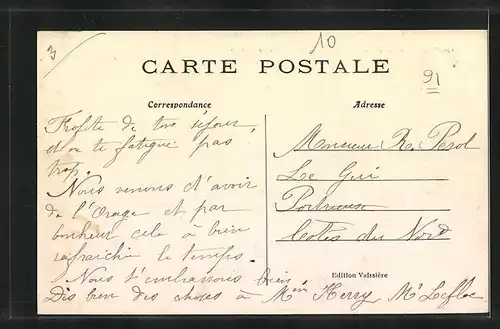 3
10
91
CARTE POSTALE
Correspondance
Adresse
Profite de ton séjour,
et ne te fatigue pas
trop.
Nous venons d'avoir
de l'Orage et par
bonheur cela à bien
rafraichi le temps.
Nous t'embrassons bien
Dis bien des choses à Mme Herry Mr Lefloc
Monsieur R. Parol
Le Gui
Portrieux
Côtes du Nord
Edition Vaissière